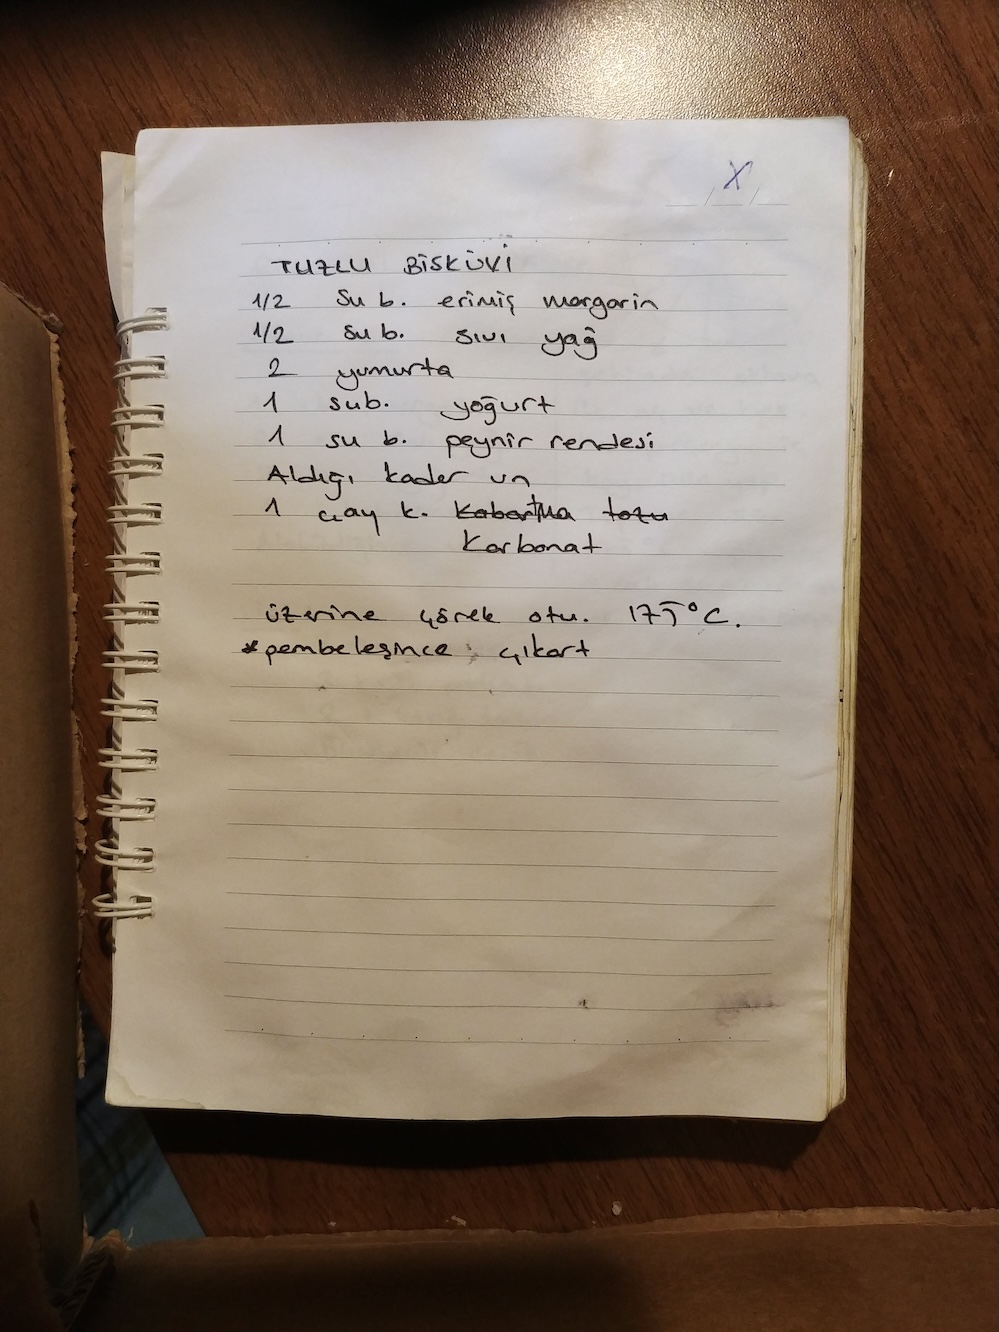 X
TUZLU BİSKÜVİ
1/2 Su b. erimiş margarin
1/2 su b. sıvı yağ
2 yumurta
1 sub. yoğurt
1 su b. peynir rendesi
Aldığı kader un
1 çay k. Kabartma tozu
Karbonat
üzerine çörek otu. 175°C.
*pembeleşince çıkart